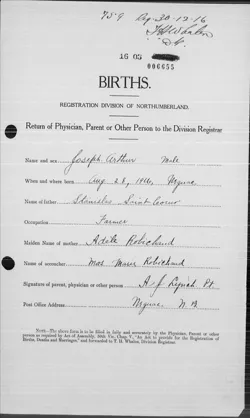 759 Reg 30-12-16
T H Whalen
D.R.
16 05
006655
BIRTHS.
REGISTRATION DIVISION OF NORTHUMBERLAND.
Return of Physician, Parent or Other Person to the Division Registrar
Name and sex Joseph Arthur Male
When and where born Aug 28, 1916,
Name of father Stanislas
Occupation Farmer
Maiden Name of mother Adele Robichaud
Name of accoucher Mrs Robichaud
Signature of parent, physician or other person
Post Office Address N. B.
NOTE.—The above form is to be filled in fully and accurately by the Physician, Parent or other
person as required by Act of Assembly, 50th Vic. Chap. V, "An Act to provide for the Registration of
Births, Deaths and Marriages," and forwarded to T. H. Whalen, Division Registrar.